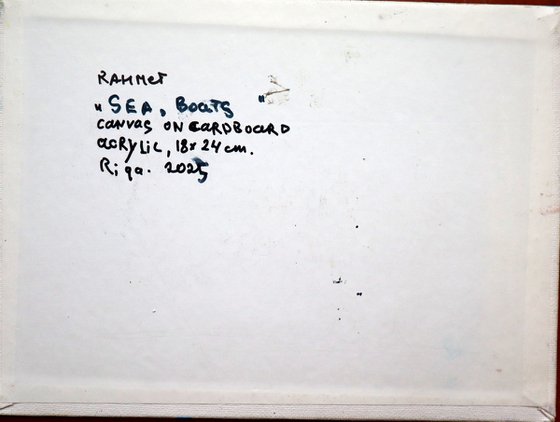 RAHMET
„SEA, Boats"
CANVAS ON CARDBOARD
acRyLic, 18x24 cm.
Riga. 2025